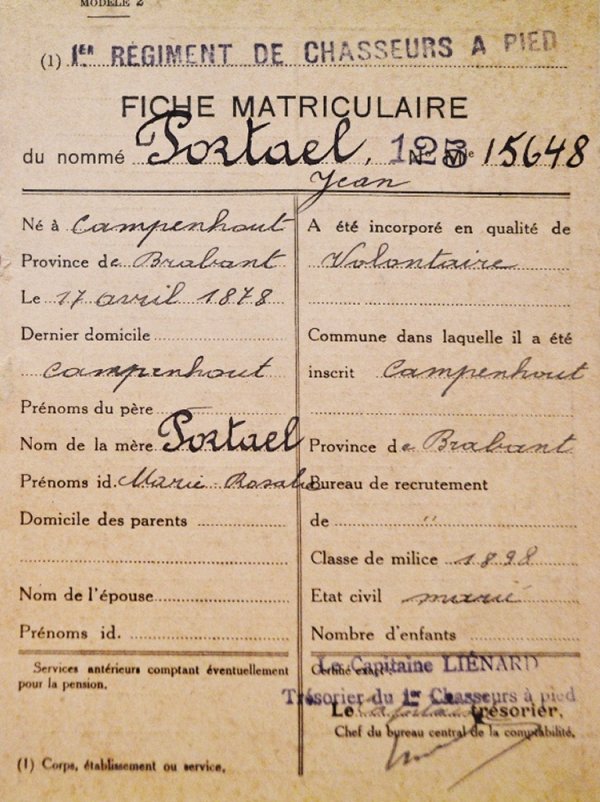 MODÈLE 2
(1) 1er RÉGIMENT DE CHASSEURS A PIED
FICHE MATRICULAIRE
du nommé Portael, 125 Nº Mle 15648
Jean
Né à Campenhout
Province de Brabant
Le 17 avril 1878
Dernier domicile
Campenhout
Prénoms du père
Nom de la mère Portael
Prénoms id. Marie Rosalie
Domicile des parents
Nom de l'épouse
Prénoms id.
Services antérieurs comptant éventuellement
pour la pension.
(1) Corps, établissement ou service.
A été incorporé en qualité de
Volontaire
Commune dans laquelle il a été
inscrit Campenhout
Province de Brabant
Bureau de recrutement
de "
Classe de milice 1898
Etat civil marié
Nombre d'enfants
Certifié exact:
Le Capitaine LIÉNARD
Trésorier du 1er Chasseurs à pied
Le trésorier,
Chef du bureau central de la comptabilité,